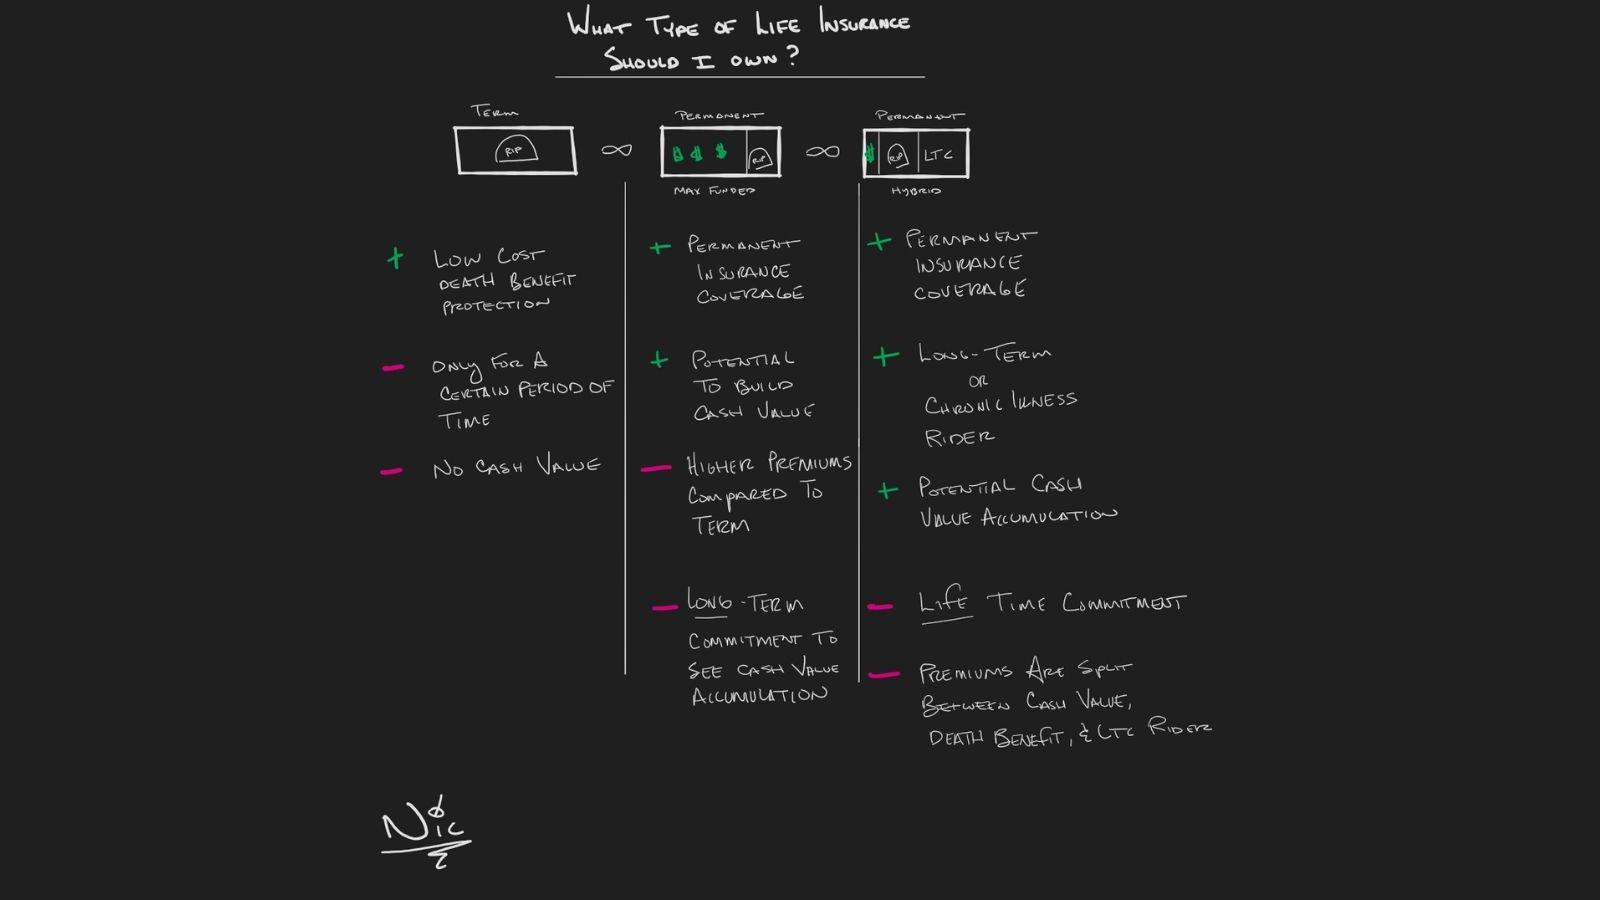 WHAT TYPE OF LIFE INSURANCE
SHOULD I OWN?
TERM
RIP
LOW COST
DEATH BENEFIT
PROTECTION
ONLY FOR A
CERTAIN PERIOD OF
TIME
NO CASH VALUE
∞
PERMANENT
$ $ $
RIP
MAX FUNDED
PERMANENT
INSURANCE
COVERAGE
POTENTIAL
TO BUILD
CASH VALUE
HIGHER PREMIUMS
COMPARED TO
TERM
LONG-TERM
COMMITMENT TO
SEE CASH VALUE
ACCUMULATION
∞
PERMANENT
$ RIP LTC
HYBRID
PERMANENT
INSURANCE
COVERAGE
LONG-TERM
OR
CHRONIC ILLNESS
RIDER
POTENTIAL CASH
VALUE ACCUMULATION
LIFE TIME COMMITMENT
PREMIUMS ARE SPLIT
BETWEEN CASH VALUE,
DEATH BENEFIT, & LTC RIDER